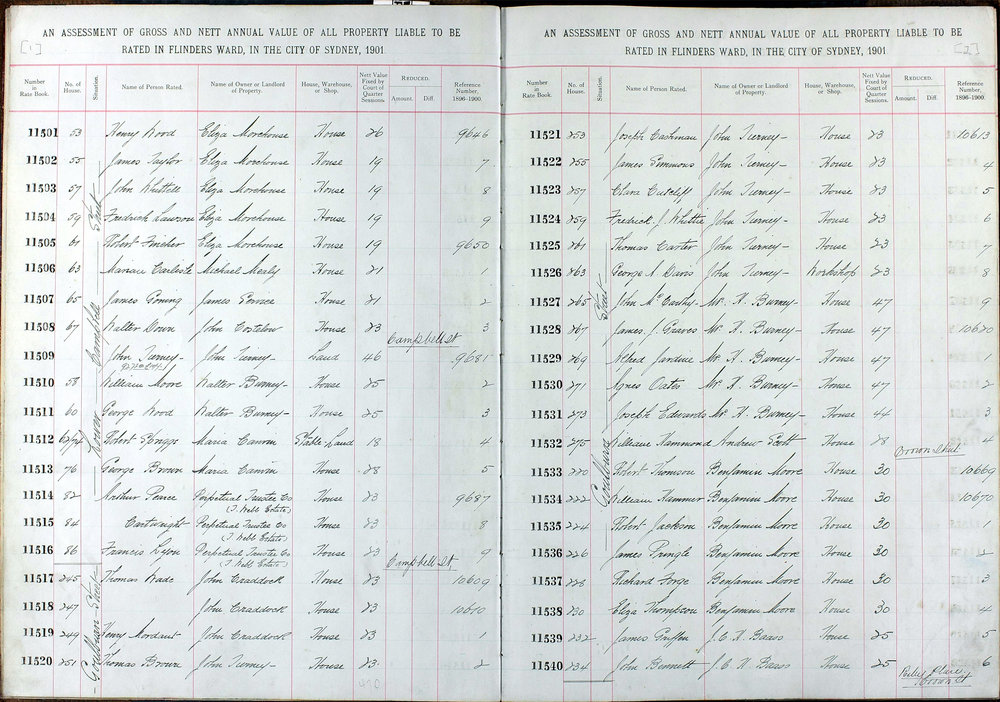 [1]
AN ASSESSMENT OF GROSS AND NETT ANNUAL VALUE OF ALL PROPERTY LIABLE TO BE
RATED IN FLINDERS WARD, IN THE CITY OF SYDNEY, 1901.
Number in Rate Book. No. of House. Situation. Name of Person Rated. Name of Owner or Landlord of Property. House, Warehouse, or Shop. Nett Value Fixed by Court of Quarter Sessions. REDUCED. Amount. Diff. Reference Number, 1896-1900.
Lower Campbell Street
11501 53 Henry Wood Eliza Morehouse House 26 9646
11502 55 James Taylor Eliza Morehouse House 19 7
11503 57 John Whittell Eliza Morehouse House 19 8
11504 59 Fredrick Lawson Eliza Morehouse House 19 9
11505 61 Robert Fincher Eliza Morehouse House 19 9650
11506 63 Carlisle Michael Mealy House 21 1
11507 65 James James House 21 2
11508 67 Walter Down John Costelow House 23 3
Campbell St
11509 John Tierney John Tierney Land 46 9681
11510 58 William Moore Walter Burney House 25 2
11511 60 George Wood Walter Burney House 25 3
11512 Robert Maria Stable Land 18 4
11513 76 George Brown Maria House 28 5
11514 82 Arthur Pearce Perpetual Trustee Co House 23 9687
(J. Webb Estate)
11515 84 Cartwright Perpetual Trustee Co House 23 8
(J. Webb Estate)
11516 86 Francis Lyon Perpetual Trustee Co House 23 9
(J. Webb Estate)
Campbell St
Goulburn Street
11517 245 Thomas Wade John Craddock House 23 10609
11518 247 John Craddock House 23 10610
11519 249 Henry Mordaunt John Craddock House 23 1
11520 251 Thomas Brown John Tierney House 23 2
[2]
AN ASSESSMENT OF GROSS AND NETT ANNUAL VALUE OF ALL PROPERTY LIABLE TO BE
RATED IN FLINDERS WARD, IN THE CITY OF SYDNEY, 1901
Number in Rate Book. No. of House. Situation. Name of Person Rated. Name of Owner or Landlord of Property. House, Warehouse, or Shop. Nett Value Fixed by Court of Quarter Sessions. REDUCED. Amount. Diff. Reference Number, 1896-1900.
Goulburn Street
11521 253 Joseph Cashman John Tierney House 23 10613
11522 255 James Simmons John Tierney House 23 4
11523 257 Clara Cutcliff John Tierney House 23 5
11524 259 Fredrick J. Whittie John Tierney House 23 6
11525 261 Thomas Carter John Tierney House 23 7
11526 263 George A Davis John Tierney Workshop 23 8
11527 265 John McCarthy Mr. H. Burney House 47 9
11528 267 James J. Graves Mr H. Burney House 47 10620
11529 269 Alfred Jardine Mr H. Burney House 47 1
11530 271 Agnes Oates Mr H. Burney House 47 2
11531 273 Joseph Edwards Mr H. Burney House 44 3
11532 275 William Hammond Andrew Scott House 28 4
Brown Street
11533 220 Robert Thomson Benjamin Moore House 30 10669
11534 222 William Hammer Benjamin Moore House 30 10670
11535 224 Robert Jackson Benjamin Moore House 30 1
11536 226 James Pringle Benjamin Moore House 30 2
11537 228 Richard Forge Benjamin Moore House 30 3
11538 230 Eliza Thompson Benjamin Moore House 30 4
11539 232 James Griffin J. C. H. Bass House 25 5
11540 234 John Burnett J. C. H. Bass House 25 6
Place
Brown St